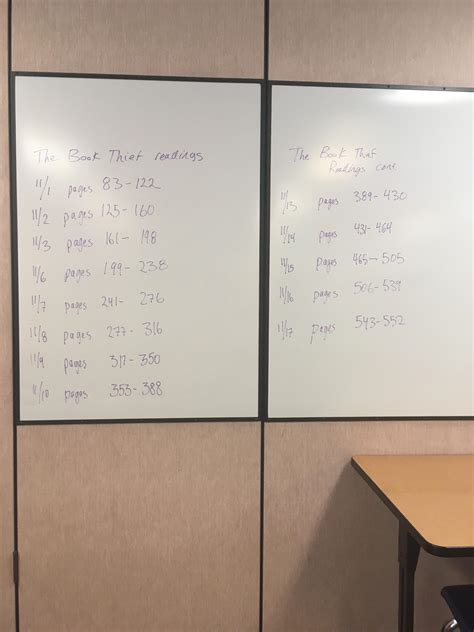 The Book Thief readings
11/1 pages 83-122
11/2 pages 125-160
11/3 pages 161-198
11/6 pages 199-238
11/7 pages 241-276
11/8 pages 277-316
11/9 pages 317-350
11/10 pages 353-388
The Book Thief
Readings cont.
11/13 pages 389-430
11/14 pages 431-464
11/15 pages 465-505
11/16 pages 506-539
11/17 pages 543-552